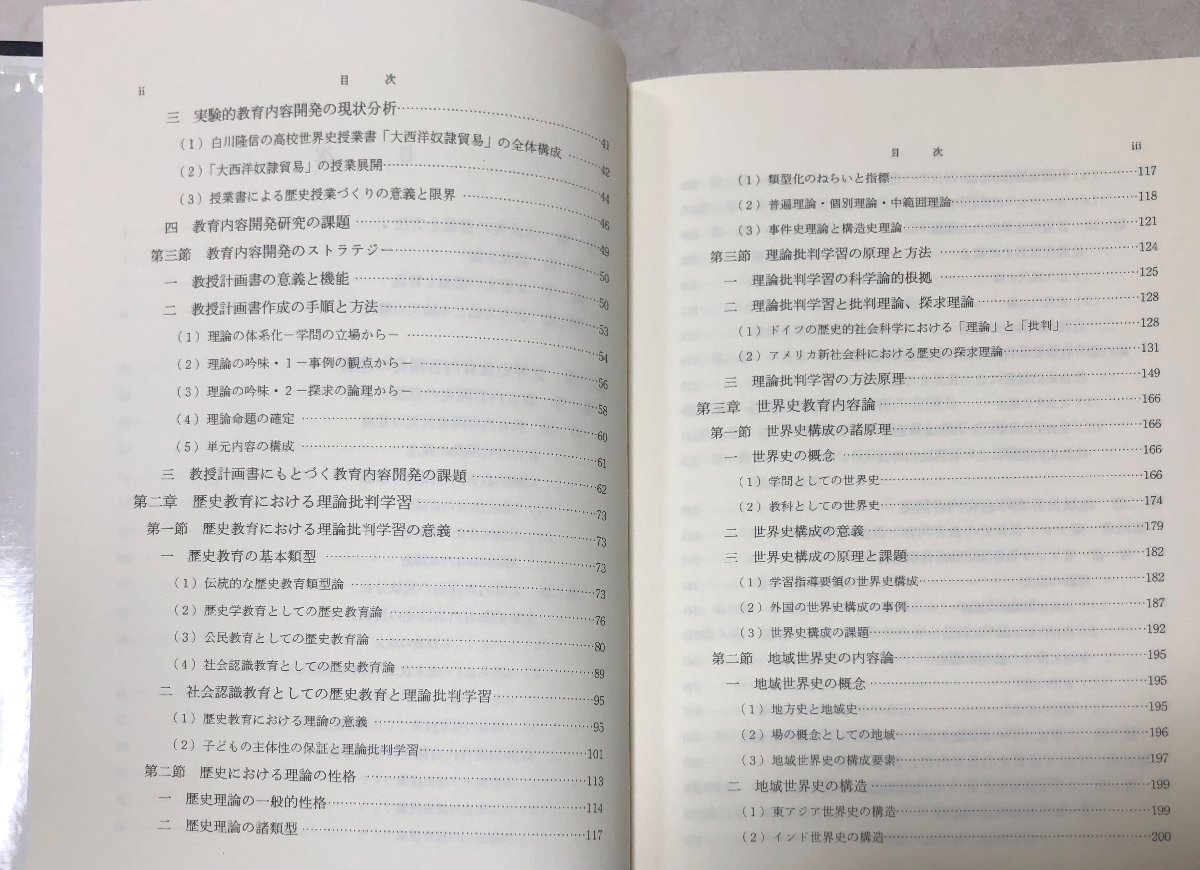 ii
目　次
三　実験的教育内容開発の現状分析……41
(1) 白川隆信の高校世界史授業書「大西洋奴隷貿易」の全体構成……42
(2)「大西洋奴隷貿易」の授業展開……44
(3) 授業書による歴史授業づくりの意義と限界……46
四　教育内容開発研究の課題……49
第三節　教育内容開発のストラテジー……50
一　教授計画書の意義と機能……50
二　教授計画書作成の手順と方法……53
(1) 理論の体系化－学問の立場から－……54
(2) 理論の吟味・1－事例の観点から－……56
(3) 理論の吟味・2－探求の論理から－……58
(4) 理論命題の確定……60
(5) 単元内容の構成……61
三　教授計画書にもとづく教育内容開発の課題……62
第二章　歴史教育における理論批判学習……73
第一節　歴史教育における理論批判学習の意義……73
一　歴史教育の基本類型……73
(1) 伝統的な歴史教育類型論……73
(2) 歴史学教育としての歴史教育論……76
(3) 公民教育としての歴史教育論……80
(4) 社会認識教育としての歴史教育論……89
二　社会認識教育としての歴史教育と理論批判学習……95
(1) 歴史教育における理論の意義……95
(2) 子どもの主体性の保証と理論批判学習……101
第二節　歴史における理論の性格……113
一　歴史理論の一般的性格……114
二　歴史理論の諸類型……117
目　次
iii
(1) 類型化のねらいと指標……117
(2) 普遍理論・個別理論・中範囲理論……118
(3) 事件史理論と構造史理論……121
第三節　理論批判学習の原理と方法……124
一　理論批判学習の科学論的根拠……125
二　理論批判学習と批判理論、探求理論……128
(1) ドイツの歴史的社会科学における「理論」と「批判」……128
(2) アメリカ新社会科における歴史の探求理論……131
三　理論批判学習の方法原理……149
第三章　世界史教育内容論……166
第一節　世界史構成の諸原理……166
一　世界史の概念……166
(1) 学問としての世界史……166
(2) 教科としての世界史……174
二　世界史構成の意義……179
三　世界史構成の原理と課題……182
(1) 学習指導要領の世界史構成……182
(2) 外国の世界史構成の事例……187
(3) 世界史構成の課題……192
第二節　地域世界史の内容論……195
一　地域世界史の概念……195
(1) 地方史と地域史……195
(2) 場の概念としての地域……196
(3) 地域世界史の構成要素……197
二　地域世界史の構造……199
(1) 東アジア世界史の構造……199
(2) インド世界史の構造……200